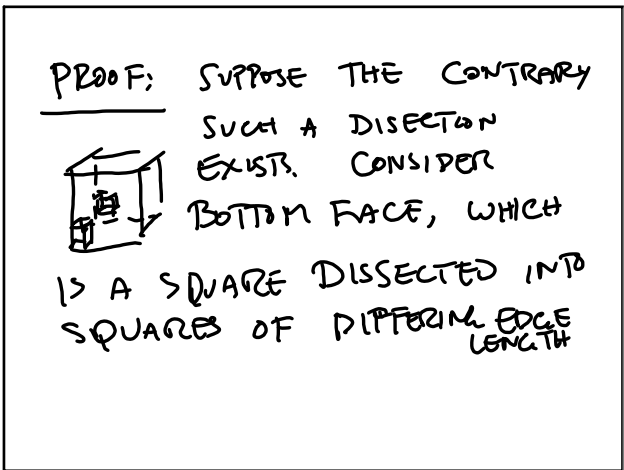 PROOF: SUPPOSE THE CONTRARY
SUCH A DISECTION
EXISTS. CONSIDER
BOTTOM FACE, WHICH
IS A SQUARE DISSECTED INTO
SQUARES OF DIFFERING EDGE
LENGTH